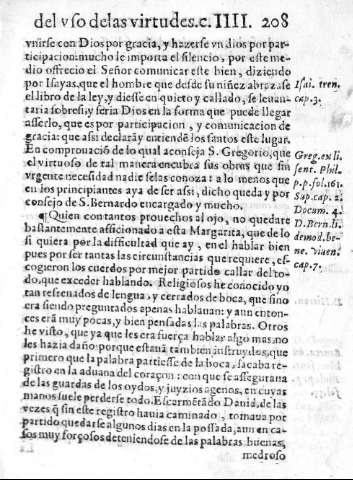 del vso de las virtudes. c. IIII. 208
vnirse con Dios por gracia, y hazerse vn dios por par-
ticipacion: mucho le importa el silencio, por este me-
dio ofrecio el Señor comunicar este bien, diziendo
por Isayas, que el hombre que desde su niñez abraza se
el libro de la ley, y diesse en quieto y callado, se leuan-
taria sobre si, y seria Dios en la forma que puede llegar
a serlo, que es por participacion, y comunicacion de
gracia: que assi declarã y entiẽde los santos este lugar.
En comprouaciõ de lo qual aconseja S. Gregorio, que
el virtuoso de tal manera encubra sus obras que sin
vrgente necesidad nadie se las conozca: a lo menos que
en los principiantes aya de ser assi, dicho queda y por
consejo de S. Bernardo encargado y mucho.
¶ Quien con tantos prouechos al ojo, no quedare
bastantemente afficionado a esta Margarita, que de lo
si quiera por la difficultad que ay, en el hablar bien
pues por ser tantas las circunstancias que requiere, es-
cogieron los cuerdos por mejor partido callar del to-
do, que exceder hablando. Religiosos he conocido yo
tan refrenados de lengua, y cerrados de boca, que sino
era siendo preguntados apenas hablauan: y aun enton-
ces erã muy pocas, y bien pensadas las palabras. Otros
he visto, que ya que les era fuerça hablar algo mas, no
les hazia daño: porque estauã tambien instruydos, que
primero que la palabra partiesse de la boca, sacaba re-
gistro en la aduana del coraçon: con que se assegurauã
de las guardas de los oydos, y juyzios agenos, en cuyas
manos suele perderse todo. Escarmẽtado Dauid, de las
vezes q̃ sin este registro hauia caminado, tomaua por
partido quedarse algunos dias en la posada, aun en ca-
sos muy forçosos deteniendose de las palabras buenas,
medroso
Isai. tren.
cap. 3.
Greg. ex li
sent. Phil.
p. p. fol. 161.
Sup. cap. 2.
Docum. 4.
D. Bern. li.
de mod. be-
ne. viuen.
cap. 7.